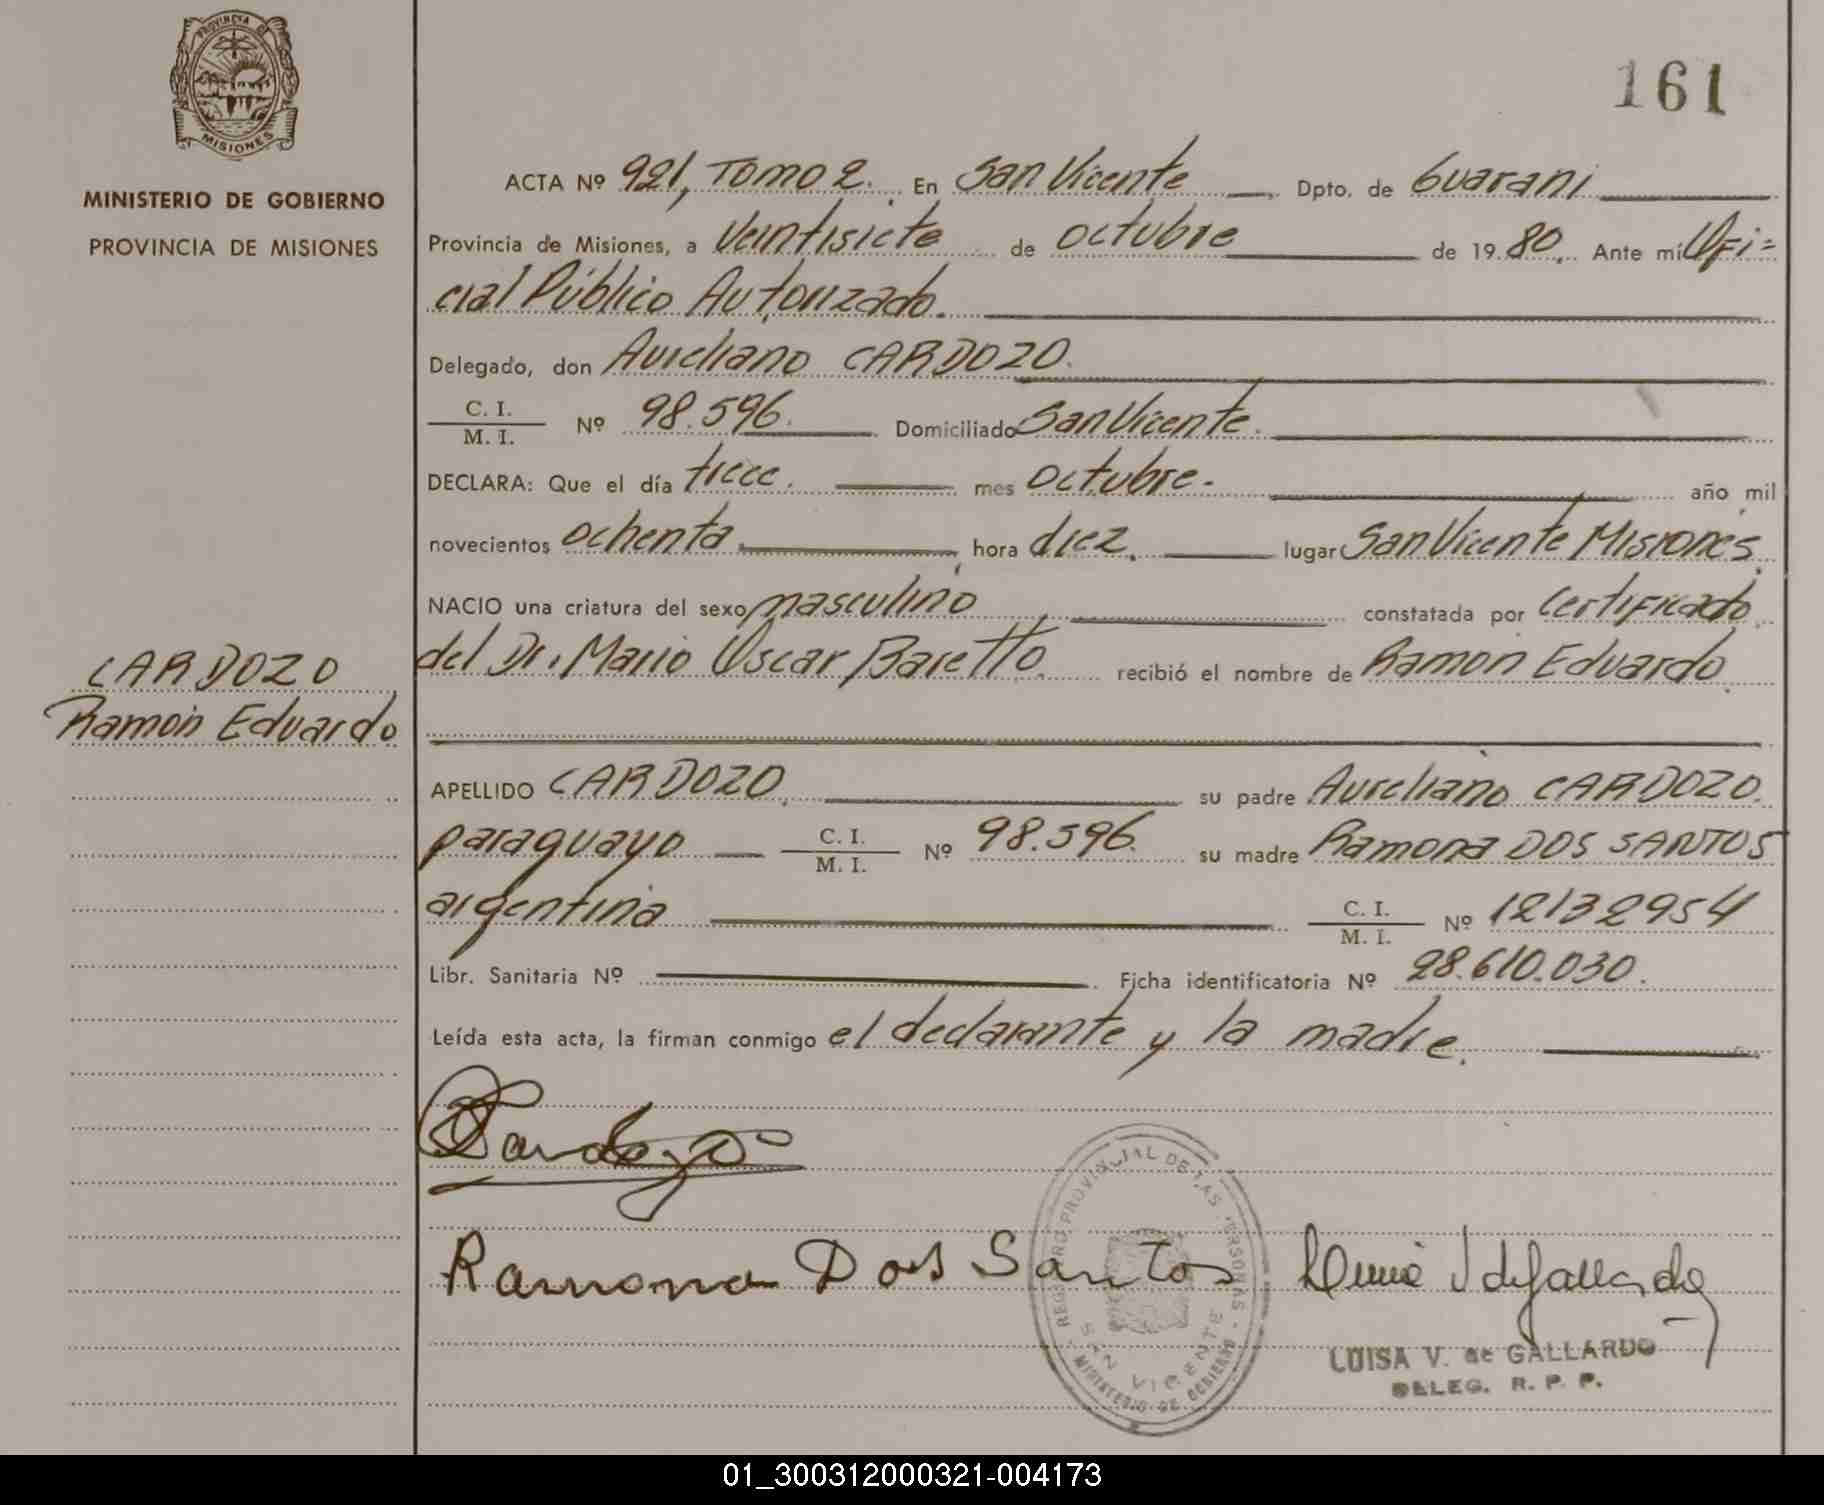 PROVINCIA DE
MISIONES
MINISTERIO DE GOBIERNO
PROVINCIA DE MISIONES
161
ACTA Nº 921, Tomo 2. En San Vicente Dpto. de Guaraní
Provincia de Misiones, a Veintisiete de octubre de 19 80. Ante mí Ofi=
cial Público Autorizado.
Delegado, don Aureliano CARDOZO.
C. I.
M. I. Nº 98.596. Domiciliado San Vicente.
DECLARA: Que el día trece. mes octubre. año mil
novecientos ochenta, hora diez. lugar San Vicente Misiones.
NACIO una criatura del sexo masculino constatada por Certificado
del Dr. Mario Oscar Baretto. recibió el nombre de Ramón Eduardo.
CARDOZO
Ramón Eduardo
APELLIDO CARDOZO, su padre Aureliano CARDOZO.
paraguayo C. I.
M. I. Nº 98.596. su madre Ramona DOS SANTOS
argentina C. I.
M. I. Nº 12132954
Libr. Sanitaria Nº Ficha identificatoria Nº 28.610.030.
Leída esta acta, la firman conmigo el declarante y la madre.
Cardozo
Ramona Dos Santos
REGISTRO PROVINCIAL DE LAS PERSONAS
SAN VICENTE
MINISTERIO DE GOBIERNO
LUISA V. de GALLARDO
DELEG. R. P. P.
01_300312000321-004173